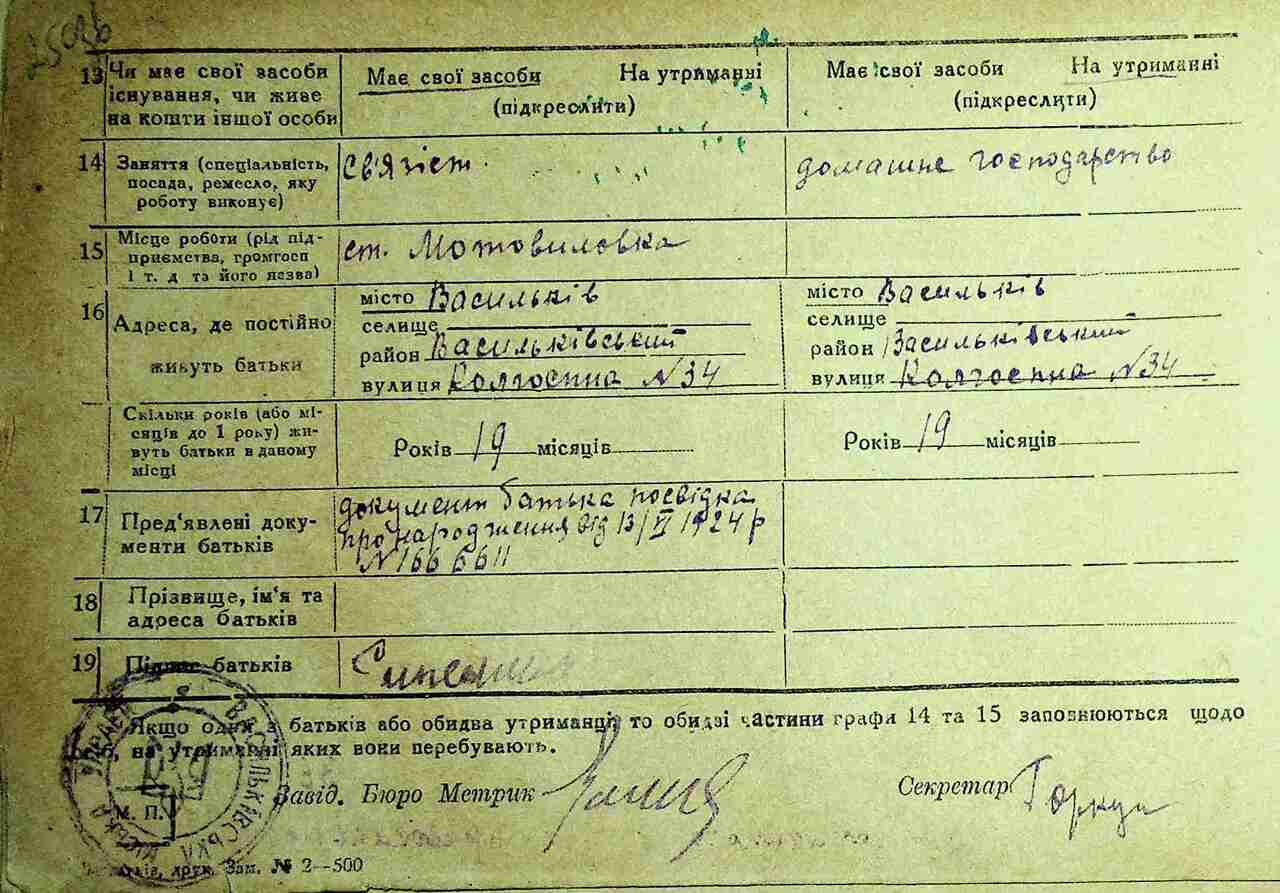 13 Чи має свої засоби існування, чи живе на кошти іншої особи
Має свої засоби На утриманні
(підкреслити)
Має свої засоби На утриманні
(підкреслити)
14 Заняття (спеціальність, посада, ремесло, яку роботу виконує)
Св'язіст
домашне господарство
15 Місце роботи (рід підприємства, громгосп і т. д та його назва)
ст. Мотовиловка
16 Адреса, де постійно живуть батьки
місто Васильків
селище
район Васильківський
вулиця Колгоспна №34
місто Васильків
селище
район Васильківський
вулиця Колгоспна №34
Скільки років (або місяців до 1 року) живуть батьки в даному місці
Років 19 місяців
Років 19 місяців
17 Пред'явлені документи батьків
документ батька посвідка
про народження від 13/VI 1924 р
№ 166 6611
18 Прізвище, ім'я та адреса батьків
19 Підпис батьків
Якщо один з батьків або обидва утриманці, то обидві частини графи 14 та 15 заповнюються щодо
осіб, на утриманні яких вони перебувають.
Завід. Бюро Метрик
Секретар
М. П.
друк. Зам. № 2—500